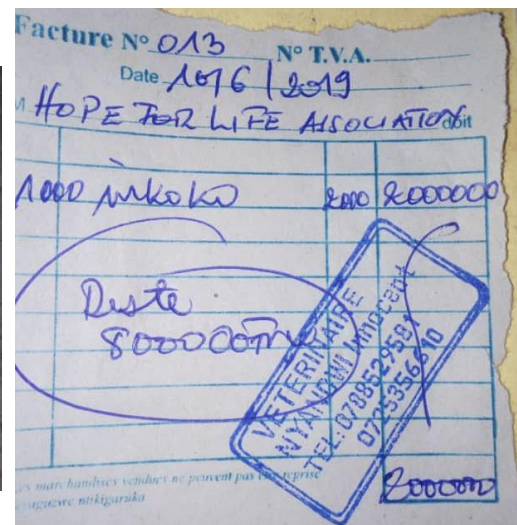 Facture Nº 013 Nº T.V.A.
Date 10/6/2019
M HOPE FOR LIFE ASSOCIATION doit
1000 inkoko 2000 2000000
Reste
800000
VETERINAIRE
NYANDWI Innocent
TEL: 0788529581
0725356610
es marchandises vendues ne peuvent pas être reprise
yaguzwe ntikigaruka
2000000